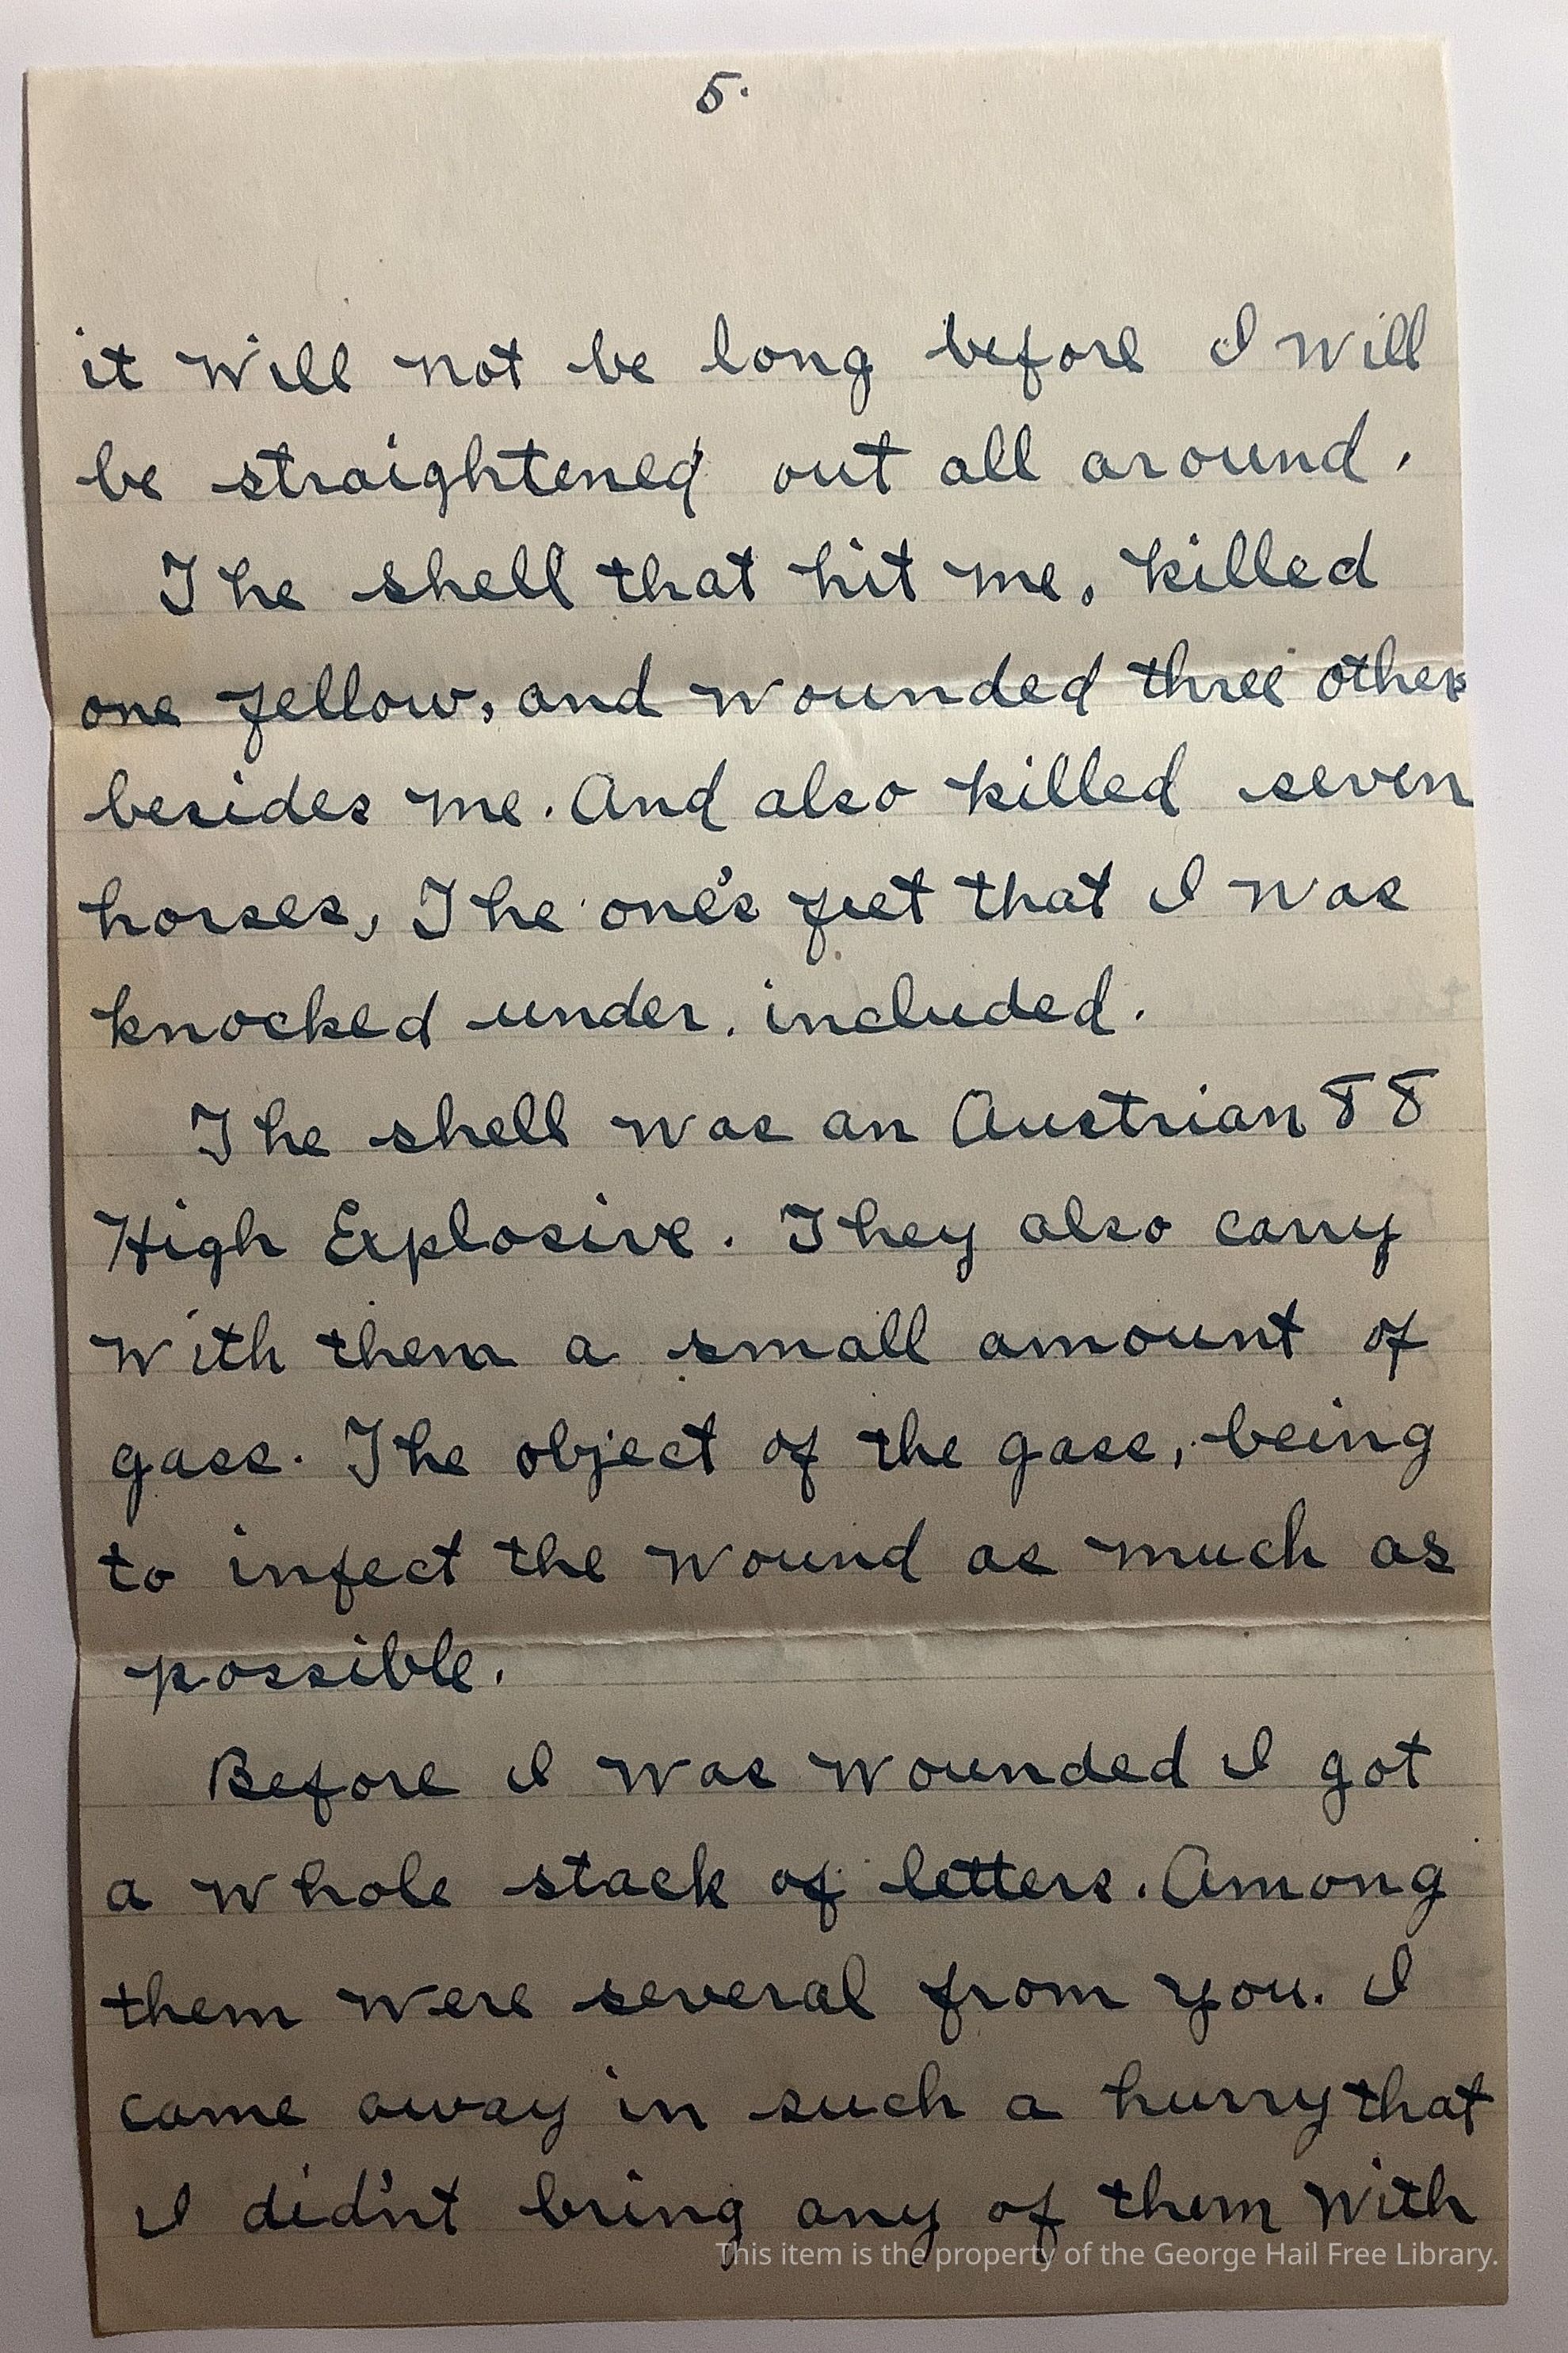 5.
it will not be long before I will
be straightened out all around.
The shell that hit me, killed
one fellow, and wounded three others
besides me. And also killed seven
horses, The one's feet that I was
knocked under. included.
The shell was an Austrian 88
High Explosive. They also carry
with them a small amount of
gass. The object of the gass, being
to infect the wound as much as
possible.
Before I was wounded I got
a whole stack of letters. Among
them were several from you. I
came away in such a hurry that
I did'nt bring any of them with
This item is the property of the George Hail Free Library.